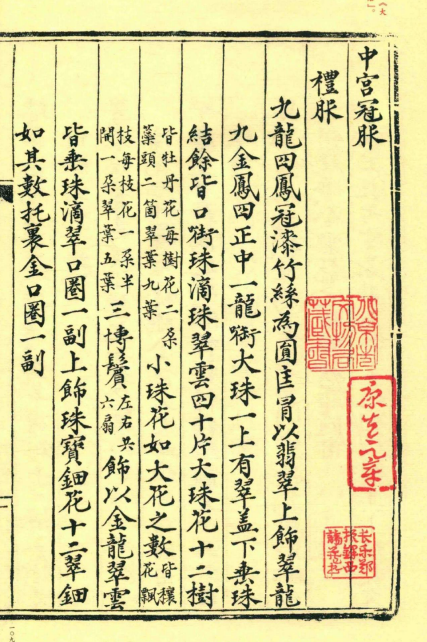 中宮冠服
禮服
九龍四鳳冠漆竹絲為圓匡冒以翡翠上飾翠龍
九金鳳四正中一龍啣大珠一上有翠盖下垂珠
結餘皆口啣珠滴珠翠雲四十片大珠花十二樹
皆牡丹花每樹花二朶
蘂頭二箇翠葉九葉
小珠花如大花之數
皆穰花飄
枝每枝花一朶半
開一朶翠葉五葉
三博鬢
左右共六扇
飾以金龍翠雲
皆垂珠滴翠口圈一副上飾珠寳鈿花十二翠鈿
如其數托裏金口圈一副